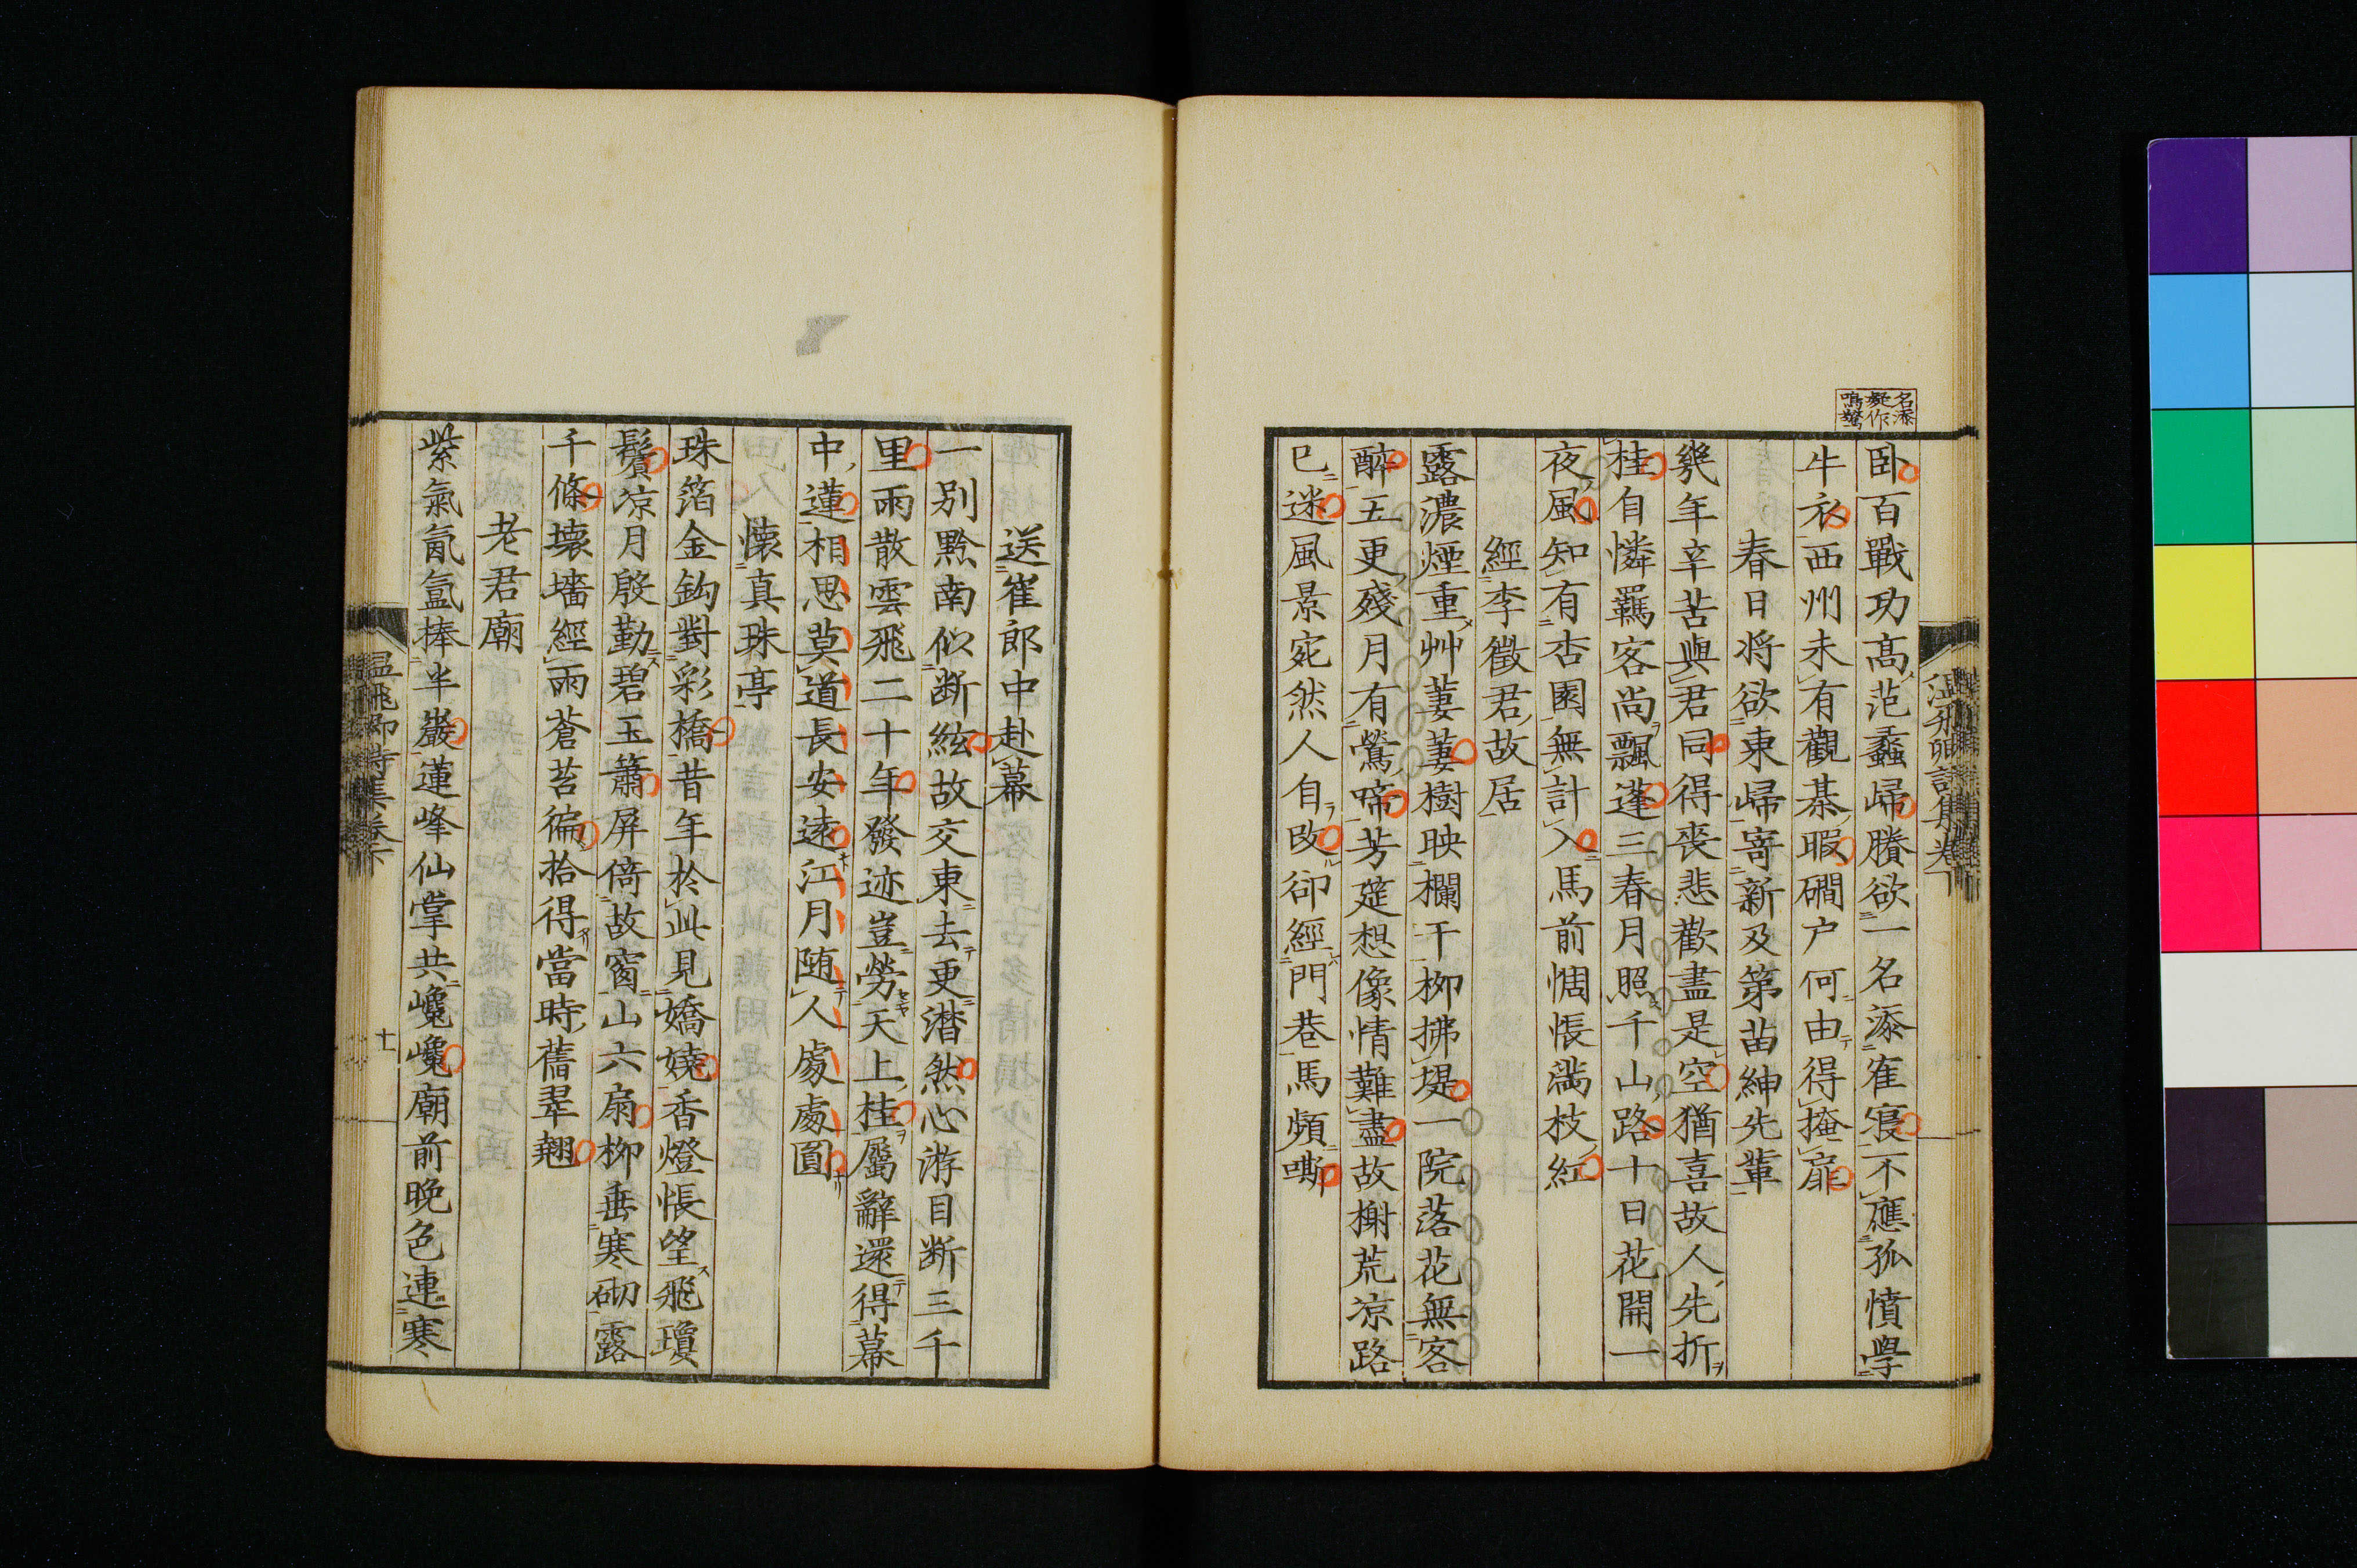 名漆
疑作
鳴驚
卧百戰功高范蠡歸賸欲一名漆寉寑不應孤憤學
牛衣西州未有觀棊暇磵户何由得掩扉
春日将欲東歸寄新及第苗紳先輩
幾年辛苦與君同得喪悲歡盡是空猶喜故人先折
桂自憐羈客尚飄蓬三春月照千山路十日花開一
夜風知有杏園無計入馬前惆悵滿枝紅
經李徵君故居
露濃煙重艸萋萋樹映欄干柳拂堤一院落花無客
醉五更殘月有鶯啼芳筵想像情難盡故榭荒凉路
已迷風景宛然人自改卻經門巷馬頻嘶
温飛卿詩集卷下
送崔郎中赴幕
一别黔南似断絃故交東去更潸然心游目断三千
里雨散雲飛二十年發迹豈勞天上桂屬辭還得幕
中蓮相思莫道長安遠江月随人處處圓
懐真珠亭
珠箔金鈎對彩橋昔年於此見嬌嬈香燈悵望飛瓊
鬢凉月殷勤碧玉簫屏倚故窗山六扇柳垂寒砌露
千條壊墻經雨蒼苔徧拾得當時舊翠翹
老君廟
紫氣氤氲捧半巖蓮峰仙掌共巉巉廟前晚色連寒
温飛卿詩集卷下
十一